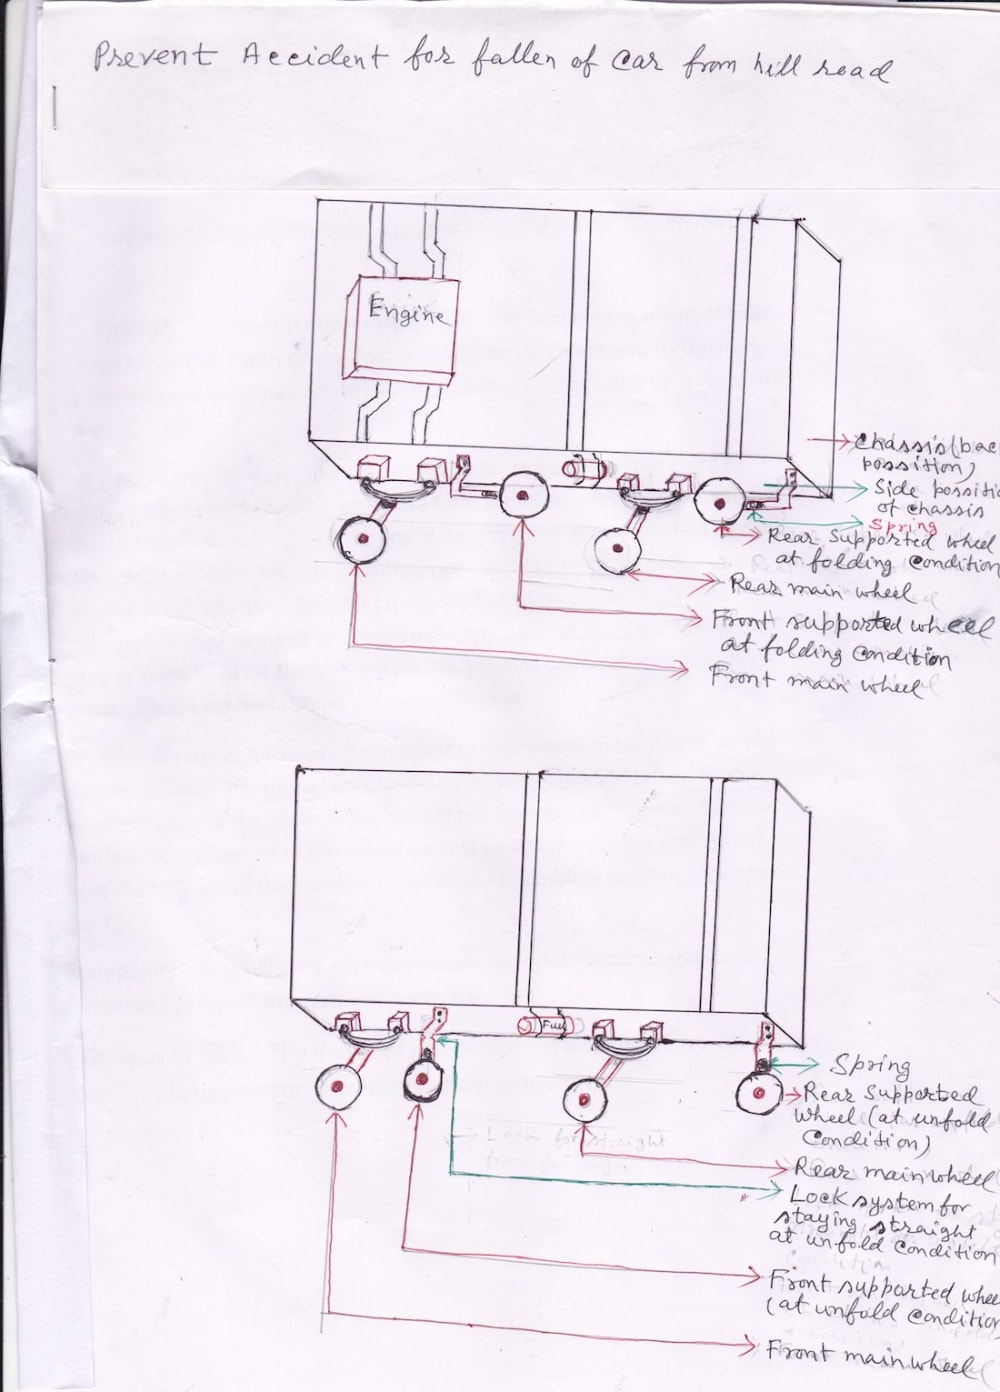 Prevent Accident for fallen of car from hill road
Engine
Chassis(bac
possition)
Side possitio
of chassis
Spring
Rear Supported wheel
at folding condition
Rear main wheel
Front supported wheel
at folding condition
Front main wheel
Fuel
Spring
Rear Supported
wheel (at unfold
condition)
Rear main wheel
Lock system for
staying straight
at unfold condition
Front supported whee
(at unfold condition
Front main wheel
Lock for straight